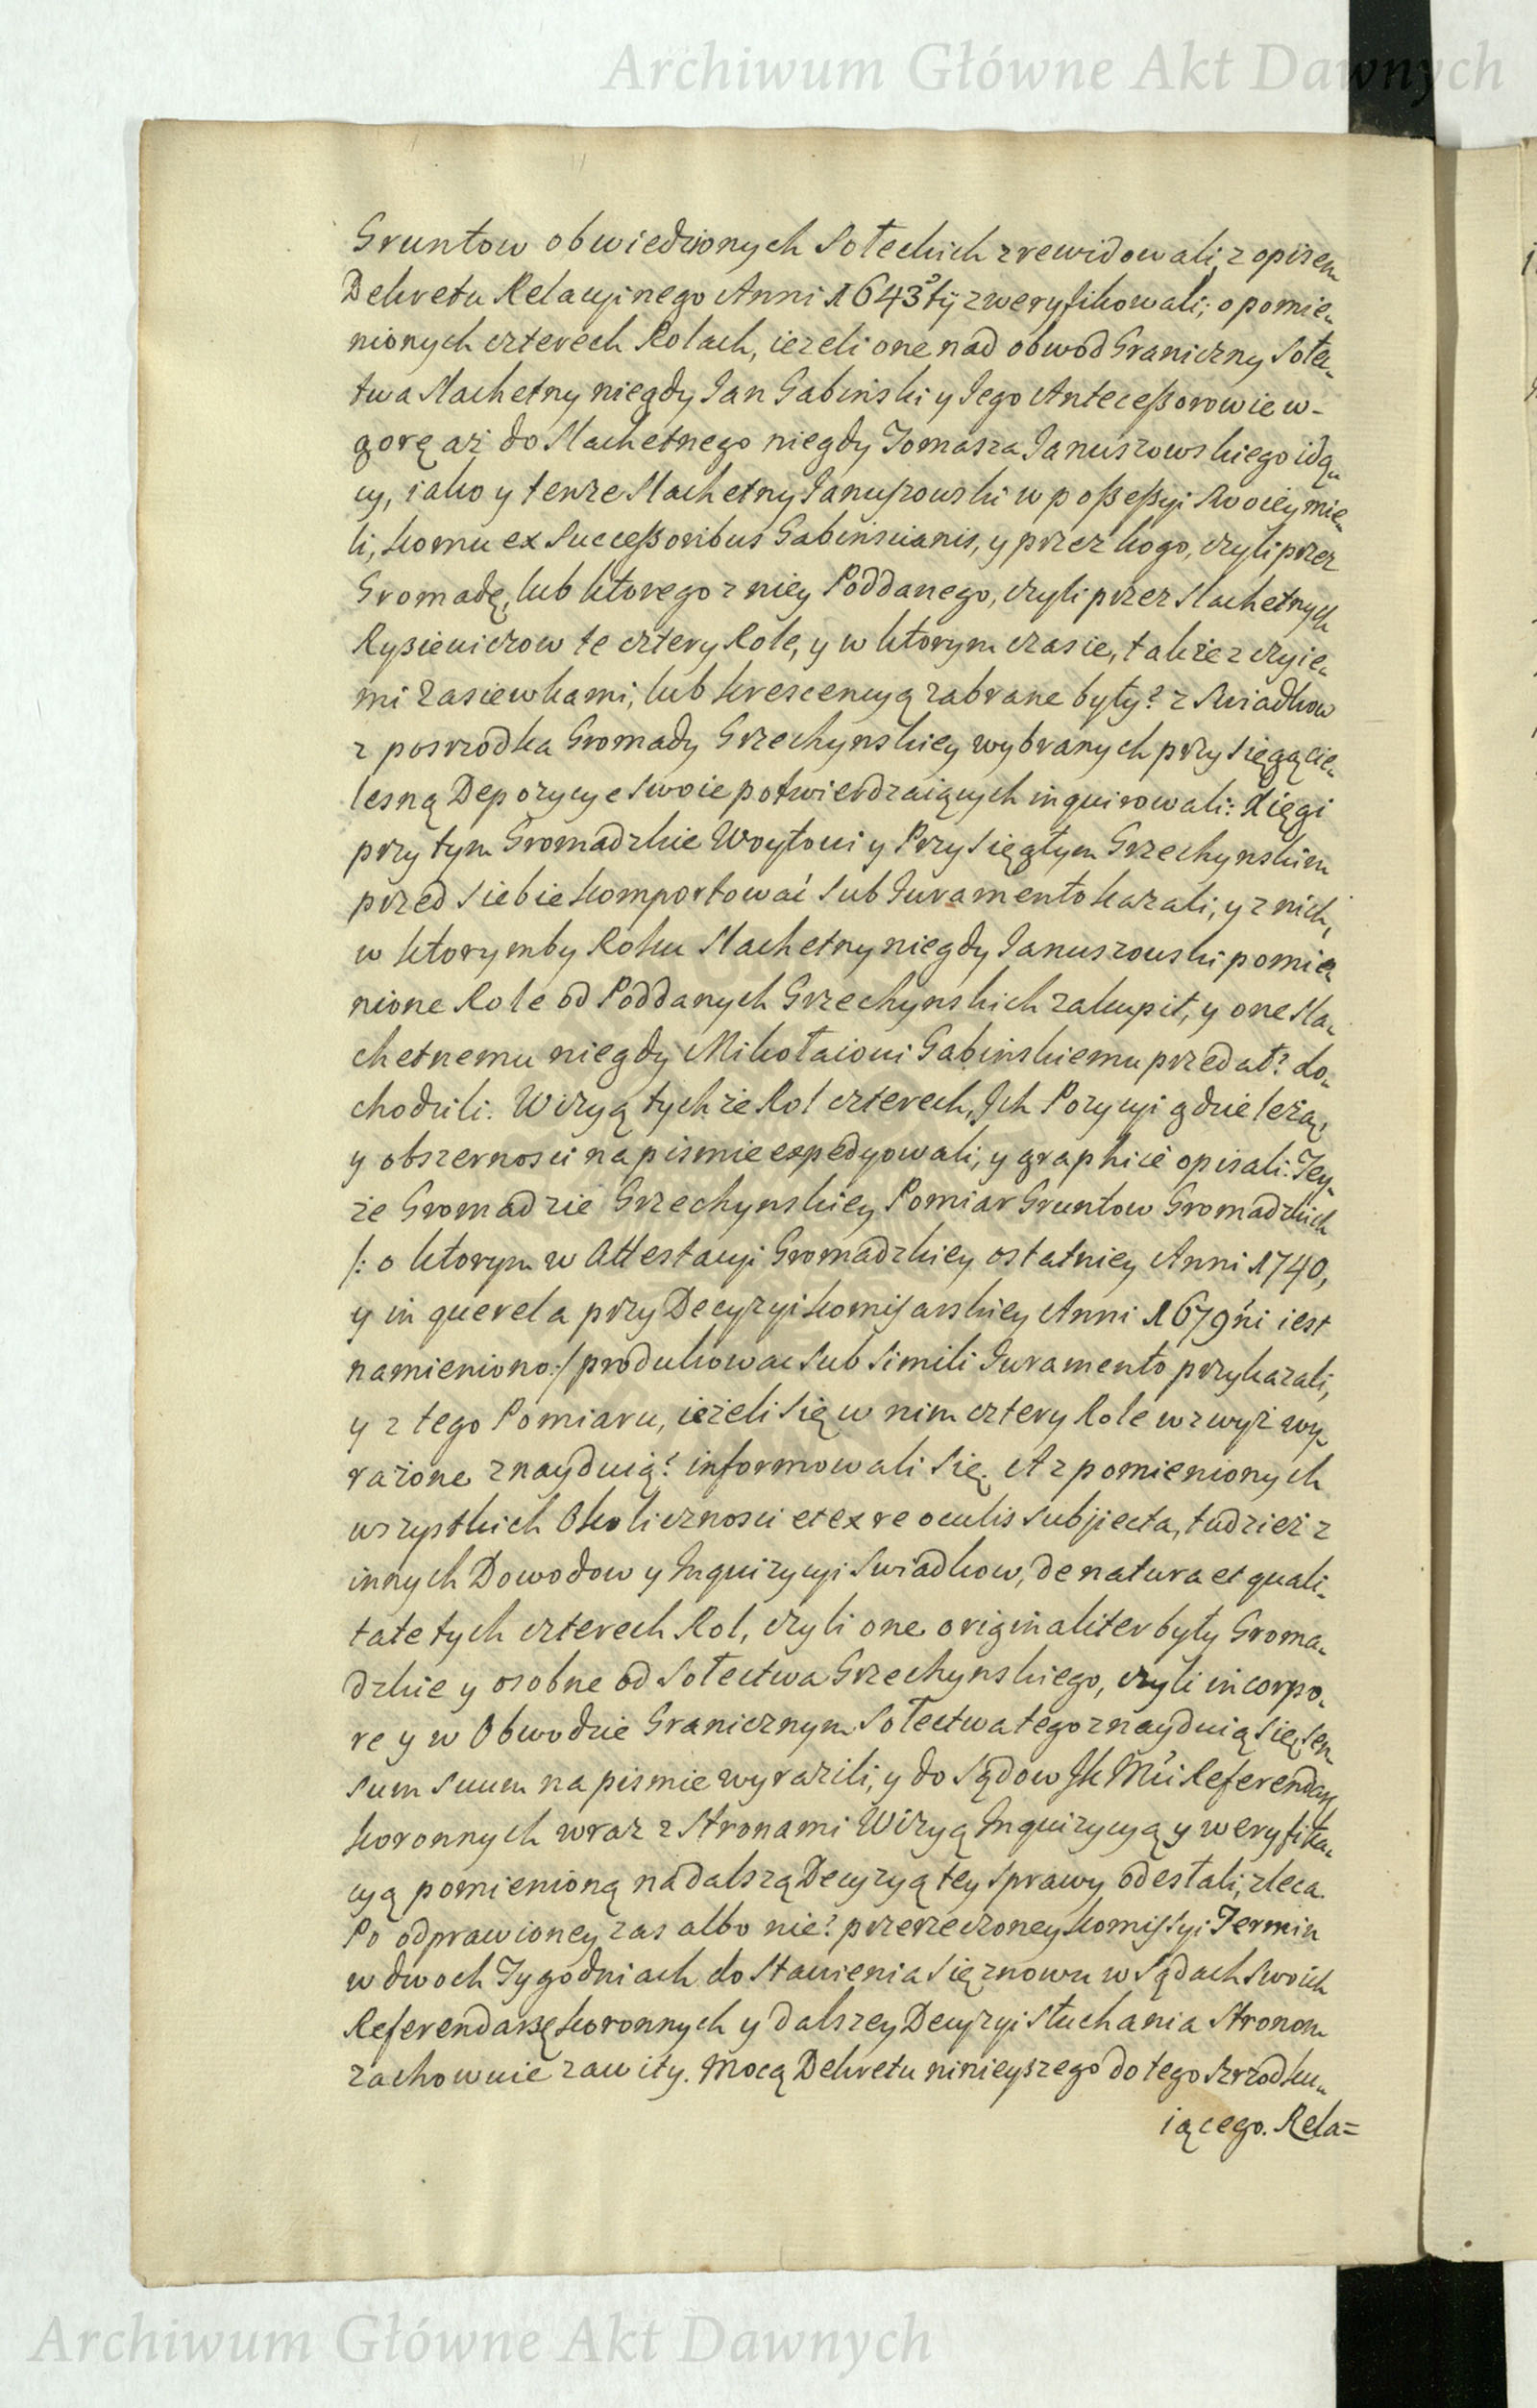 Archiwum Główne Akt Dawnych
Gruntow obwiedzionych Sołeckich zrewidowali, z opisem
Dekretu Relacyinego Anni 1643tÿ zweryfikowali; o pomie-
nionych czterech Rolach, iezeli one nad obwod Graniczny Sołec-
twa Slachetny niegdy Jan Gabinski y Jego Antecessorowie w-
gorę aż do Slachetnego niegdy Tomasza Januszowskiego idą-
cy, iako y tenże Slachetny Januszowski w possessyi swoiey mie-
li, komu ex Successoribus Gabinscianis, y przez kogo, czyli przez
Gromadę, lub ktorego z niey Poddanego, czyli przez Slachetnych
Rysiewiczow te cztery Role, y w ktorym czasie, także z czyie-
mi zasiewkami, lub krescencyą zabrane były? z Swiadkow
z posrzodka Gromady Grzechynskiey wybranych przysięgą cie-
lesną Depozycye swoie potwierdzaiących inquirowali: Xięgi
przytym Gromadzkie Woytowi y Przysięgłym Grzechynskim
przed siebie komportować sub Juramento kazali, y z nich,
w ktorymby Roku Slachetny niegdy Januszowski pomie-
nione Role od Poddanych Grzechynskich zakupił, y one Sla-
chetnemu niegdy Mikołaiowi Gabinskiemu przedał? do-
chodzili. Wizyą tychże Rol czterech, Ich Pozycyi gdzie leżą,
y obszernosci na pismie expedyowali, y graphicè opisali: Tey-
że Gromadzie Grzechynskiey Pomiar Gruntow Gromadzkich
/: o ktorym w Attestacyi Gromadzkiey ostatniey Anni 1740,
y in querela przy Decyzyi Komisarskiey Anni 1679ni iest
namieniono:/ produkować sub simili Juramento przykazali,
y z tego Pomiaru, ieżeli się w nim cztery Role wzwyż wy-
rażone znayduią? informowali się. A z pomienionych
wszystkich Okolicznosci et ex re oculis subjecta, tudzież z
innych Dowodow y Inquizycyi Swiadkow, de natura et quali-
tate tych czterech Rol, czyli one originaliter były Groma-
dzkie y osobne od Sołectwa Grzechynskiego, czyli in corpo-
re y w Obwodzie Granicznym Sołectwa tego znayduią się, sen-
sum suum na pismie wyrazili, y do Sądow Jch Mci Referendarzy
Koronnych wraz z Stronami Wizyą Inquizycyą y weryfika-
cyą pomienioną na dalszą Decyzyą tey sprawy odesłali, zleca.
Po odprawioney zas albo nie? przerzeczoney Komissyi Termin
w dwoch Tygodniach do stawienia się znowu w Sądach swoich
Referendarzę Koronnych y dalszey Decyzyi słuchania Stronom
zachowuie zawity. Mocą Dekretu ninieyszego do tego szrzodku-
iącego. Rela=
Archiwum Główne Akt Dawnych